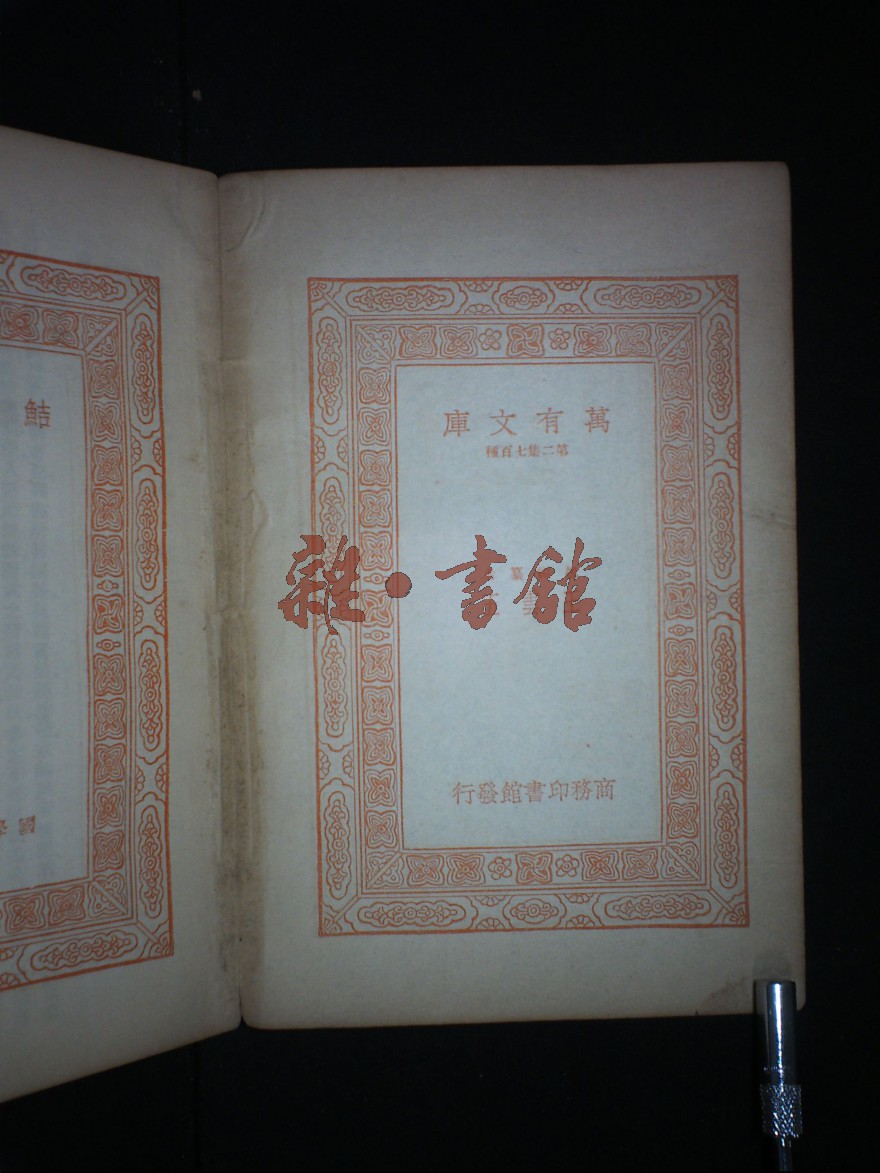 萬有文庫
第二集七百種
雜·書館
商務印書館發行
鮚
國學